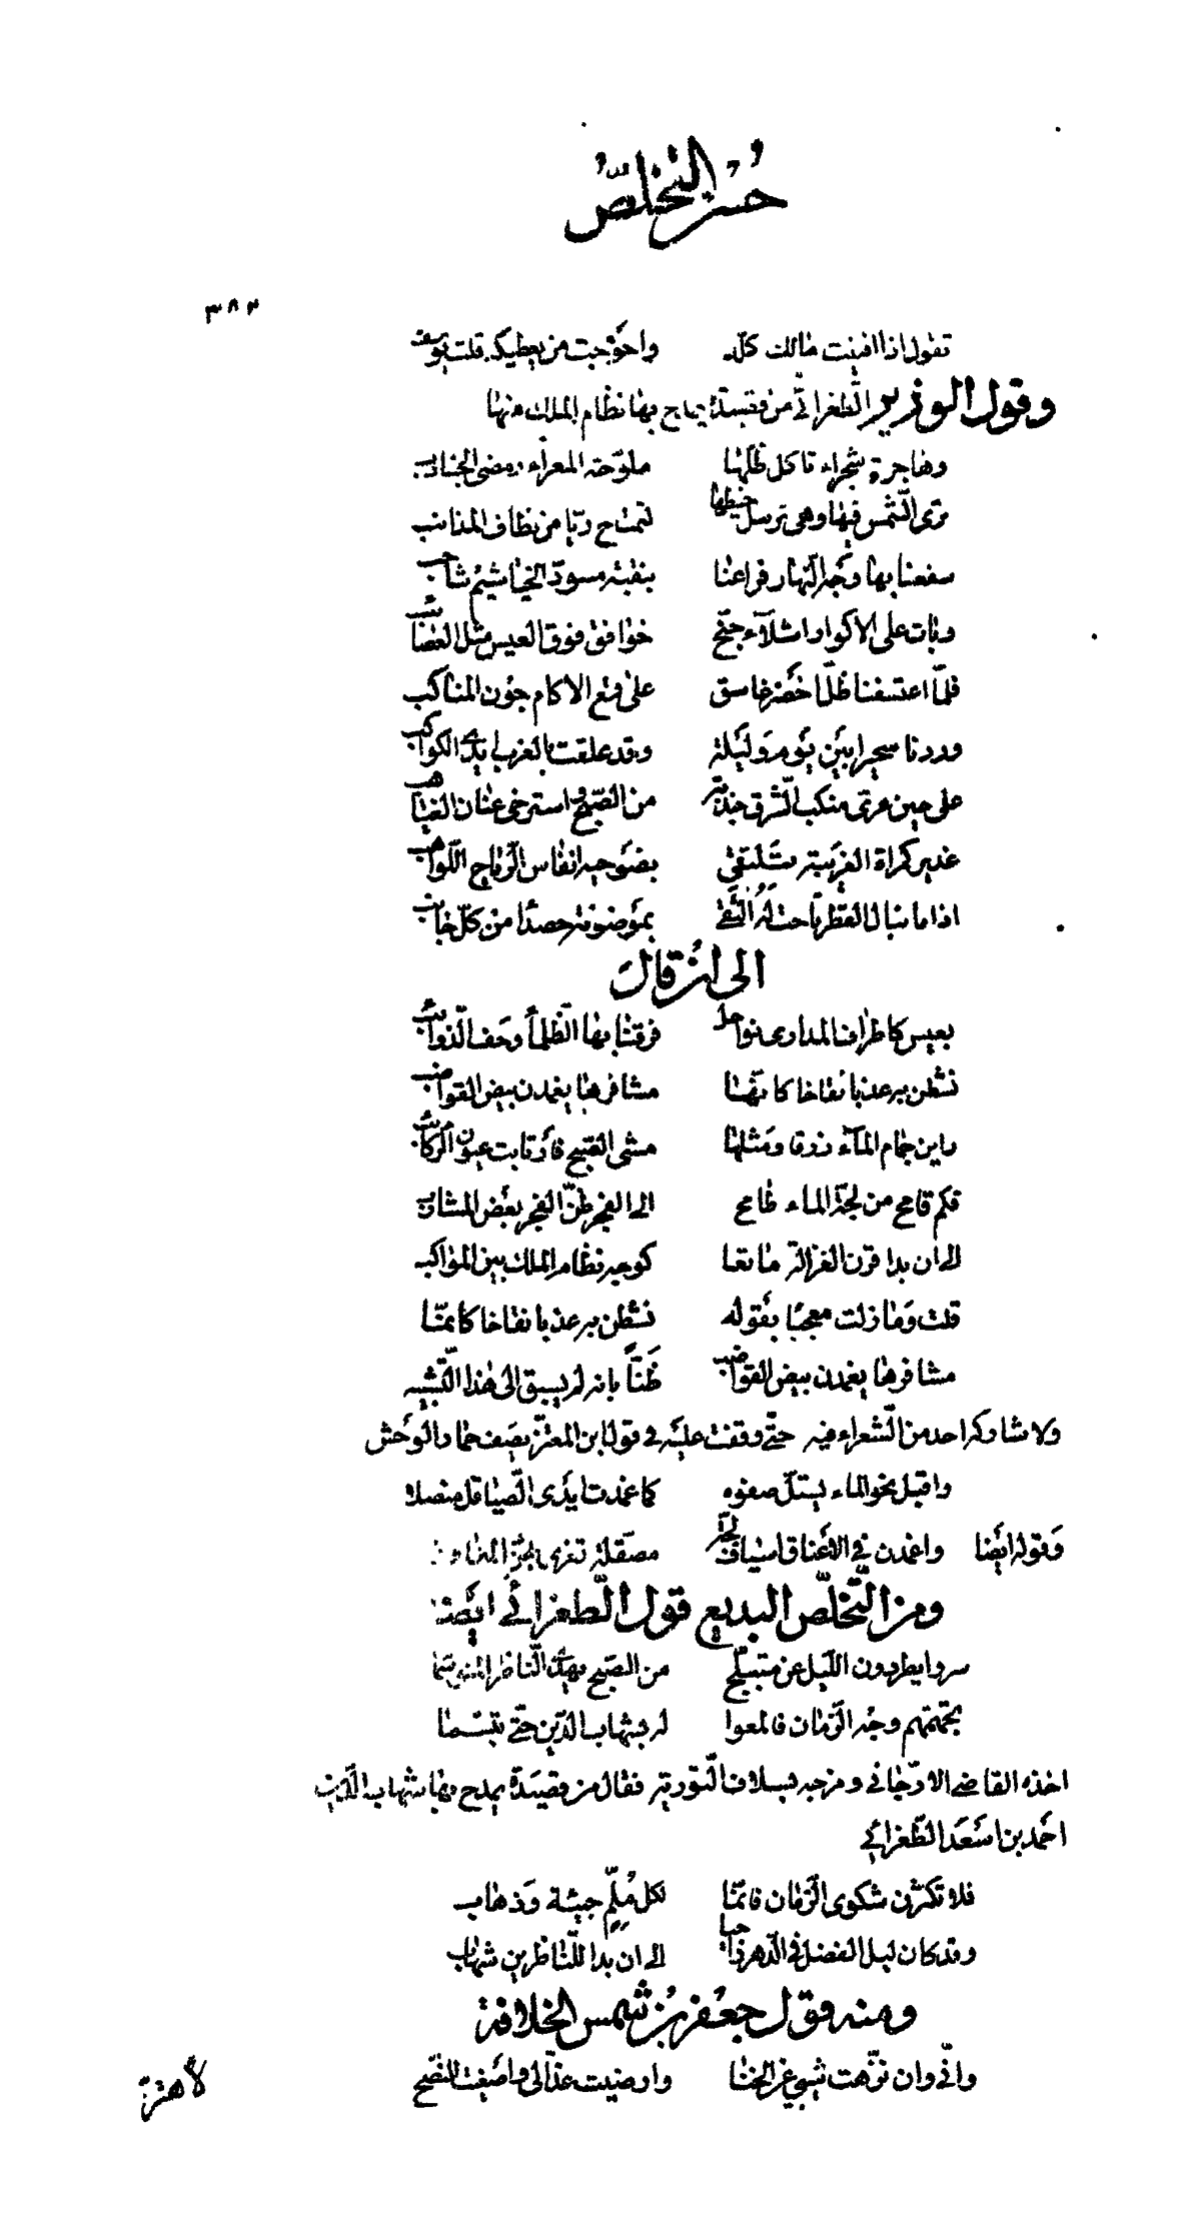 حُسنُ التخلّصُ
٣٨٣
تقول اذا افنيت مالك كلّه واحوجت من يعطيك قلت يوسف
وقول الوزير الطغرائي من قصيدة يمدح بها نظام الملك منها
وهاجرة شجراء تاكل ظلها ملوّحة المعزاء رمضى الجنادب
ترى الشمس فيها وهى ترسل خيطها لتمتاح ريا من نطاف المذانب
سفعنا بها وجه النهار فراعنا بنقبة مسودّ الخياشيم شاحب
وبات على الاكوار اشلاء جنّح خوافق فوق العيس مثل العصائب
فلمّا اعتسفنا ظلّ اخضر غاسق على قمع الاكام جون المناكب
وردنا سحيرا بين يوم وليلة وقد علقت بالغرب ايدى الكواكب
على حين عرى منكب الشرق جذبة من الصبح واسترخى عنان الغياهب
غدير كمراة الغريبة تلتقى بضوحيه انفاس الرياح اللواهب
اذا ما نبال القطر تاحت له اتقى بموضونة حصدا من كلّ جانب
الى ان قال
بعيس كاطراف المدارى نواحل فرقنا بها الظلماء وحف الذوائب
نشطن به عذبا نقاخا كانّما مشافرها يغمدن بيض القواضب
راين جمام الماء زرقا ومثلها مشى الصبح فارتابت عيون الركائب
فكم قامح من لجة الماء طامح الى الفجر ظنّ الفجر بعض المشارب
الى ان بدا قرن الغزالة ماتعا كوجه نظام الملك بين المواكب
قلت وما زلت معجبا بقوله نشطن به عذبا نقاخا كانمّا
مشافرها يغمدن بيض القواضب ظنّاً بانه لم يسبق الى هذا التّشبيه
ولا شاركه احد من الشعراء فيه حتّى وقفت عليه في قول ابن المعتزّ يصف حمار الوحش
واقبل نحو الماء يستلّ صفوه كما غمدت ايدى الصياقل منصلا
وقوله ايضا واغمدن في الاعناق اسياف لجّة مصقّلة تفرى بهنّ المفاوز
ومن التّخلّص البديع قول الطغرائي ايضا
سروا يطردون الليل عن متبلّج من الصبح يهدى الناظر المتوسّما
بجمّتهم وجه الزمان فالمعوا له بشهاب الدّين حتّى تبسّما
اخذه القاضى الارّجاني ومزجه بسلاف التّورية فقال من قصيدة يمدح بها شهاب الدّين
احمد بن اسعد الطّغرائي
فلا تكثرن شكوى الزّمان فانمّا لكل مُلمّ جيئة وذهاب
وقد كان ليل الفضل في الدّهر داجيا الى ان بدا للنّاظرين شهاب
ومنه قول جعفر بن شمس الخلافة
وانّي وان نزّهت شيبي عن الخنا وارضيت عذّالى واصغيت للنّصح
لاهتزّ